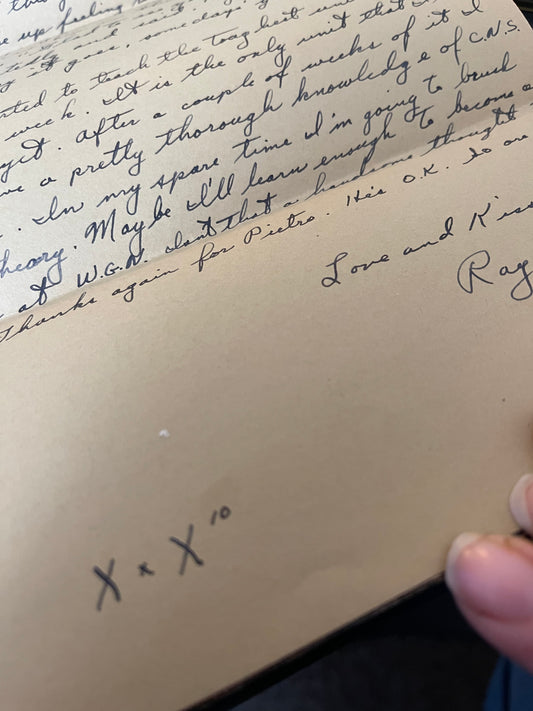 this
e up feeling
and
it goes, someday.
rted to teach the
week. It is the only unit that
get. After a couple of weeks of it I
ve a pretty thorough knowledge of C.N.S.
. In my spare time I'm going to brush
heory. Maybe I'll learn enough to become a
at W.G.N. Isnt that a handsome thought
Thanks again for Pietro. He's O.K. So are
Love and Kiss
Ray
X × X¹⁰